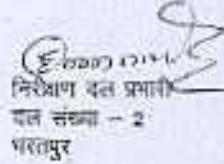 निरीक्षण दल प्रभारी
दल संख्या – 2
भरतपुर